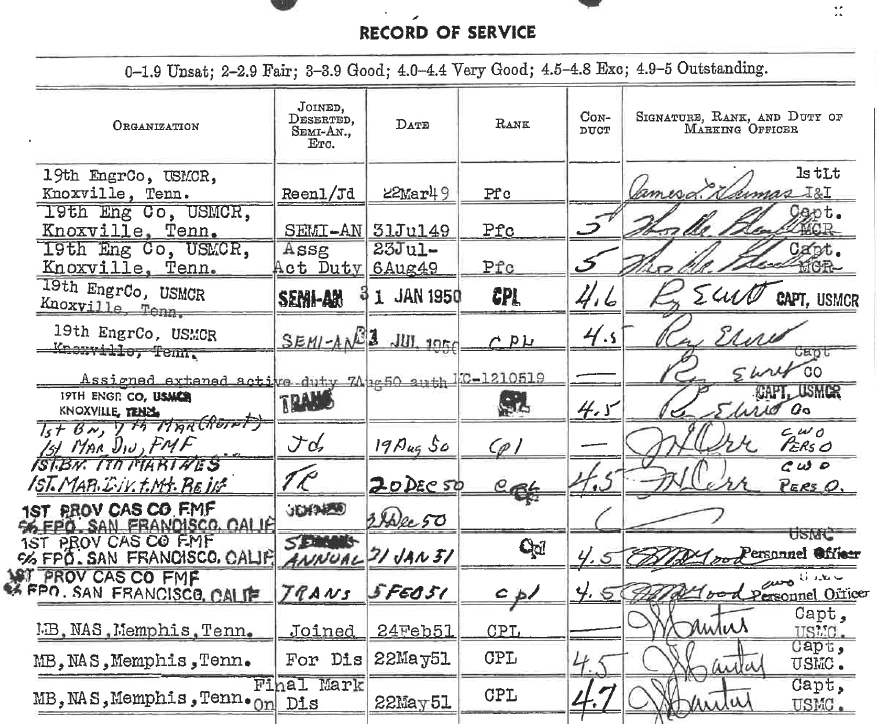 RECORD OF SERVICE
0–1.9 Unsat; 2–2.9 Fair; 3–3.9 Good; 4.0–4.4 Very Good; 4.5–4.8 Exc; 4.9–5 Outstanding.
ORGANIZATION JOINED, DESERTED, SEMI-AN., ETC. DATE RANK CON-DUCT SIGNATURE, RANK, AND DUTY OF MARKING OFFICER
19th EngrCo, USMCR, 1stLt
Knoxville, Tenn. Reenl/Jd 22Mar49 Pfc James I&I
19th Eng Co, USMCR, Capt.
Knoxville, Tenn. SEMI-AN 31Jul49 Pfc 5 MCR
19th Eng Co, USMCR, Assg 23Jul- Capt.
Knoxville, Tenn. Act Duty 6Aug49 Pfc 5 MCR
19th EngrCo, USMCR
Knoxville, Tenn. SEMI-AN 31 JAN 1950 CPL 4.6 CAPT, USMCR
19th EngrCo, USMCR
Knoxville, Tenn. SEMI-AN 31 JUL 1950 CPL 4.5
Capt
Assigned extened active duty 7Aug50 auth MC-1210519 — CO
19TH ENGR CO, USMCR CAPT, USMCR
KNOXVILLE, TENN. TRANS CPL 4.5 CO
1st Bn, 7th Mar (Reinf) CWO
1st Mar Div, FMF Jd 19 Aug 50 Cpl — Orr PERS O
1ST. BN. 7TH MARINES CWO
1ST. MAR. DIV. FMF. REIN TR 20 DEC 50 CPL 4.5 Orr PERS O.
1ST PROV CAS CO FMF JOINED
C/o FPO. SAN FRANCISCO, CALIF Dec 50
1ST PROV CAS CO FMF SEMI USMC
C/o FPO. SAN FRANCISCO, CALIF ANNUAL 31 JAN 51 Cpl 4.5 Personnel Officer
1ST PROV CAS CO FMF CWO
C/o FPO. SAN FRANCISCO, CALIF TRANS 5 FEB 51 cpl 4.5 Personnel Officer
MB,NAS,Memphis,Tenn. Joined 24Feb51 CPL — Capt, USMC.
MB,NAS,Memphis,Tenn. For Dis 22May51 CPL 4.5 Capt, USMC.
Final Mark
MB,NAS,Memphis,Tenn. on Dis 22May51 CPL 4.7 Capt, USMC.